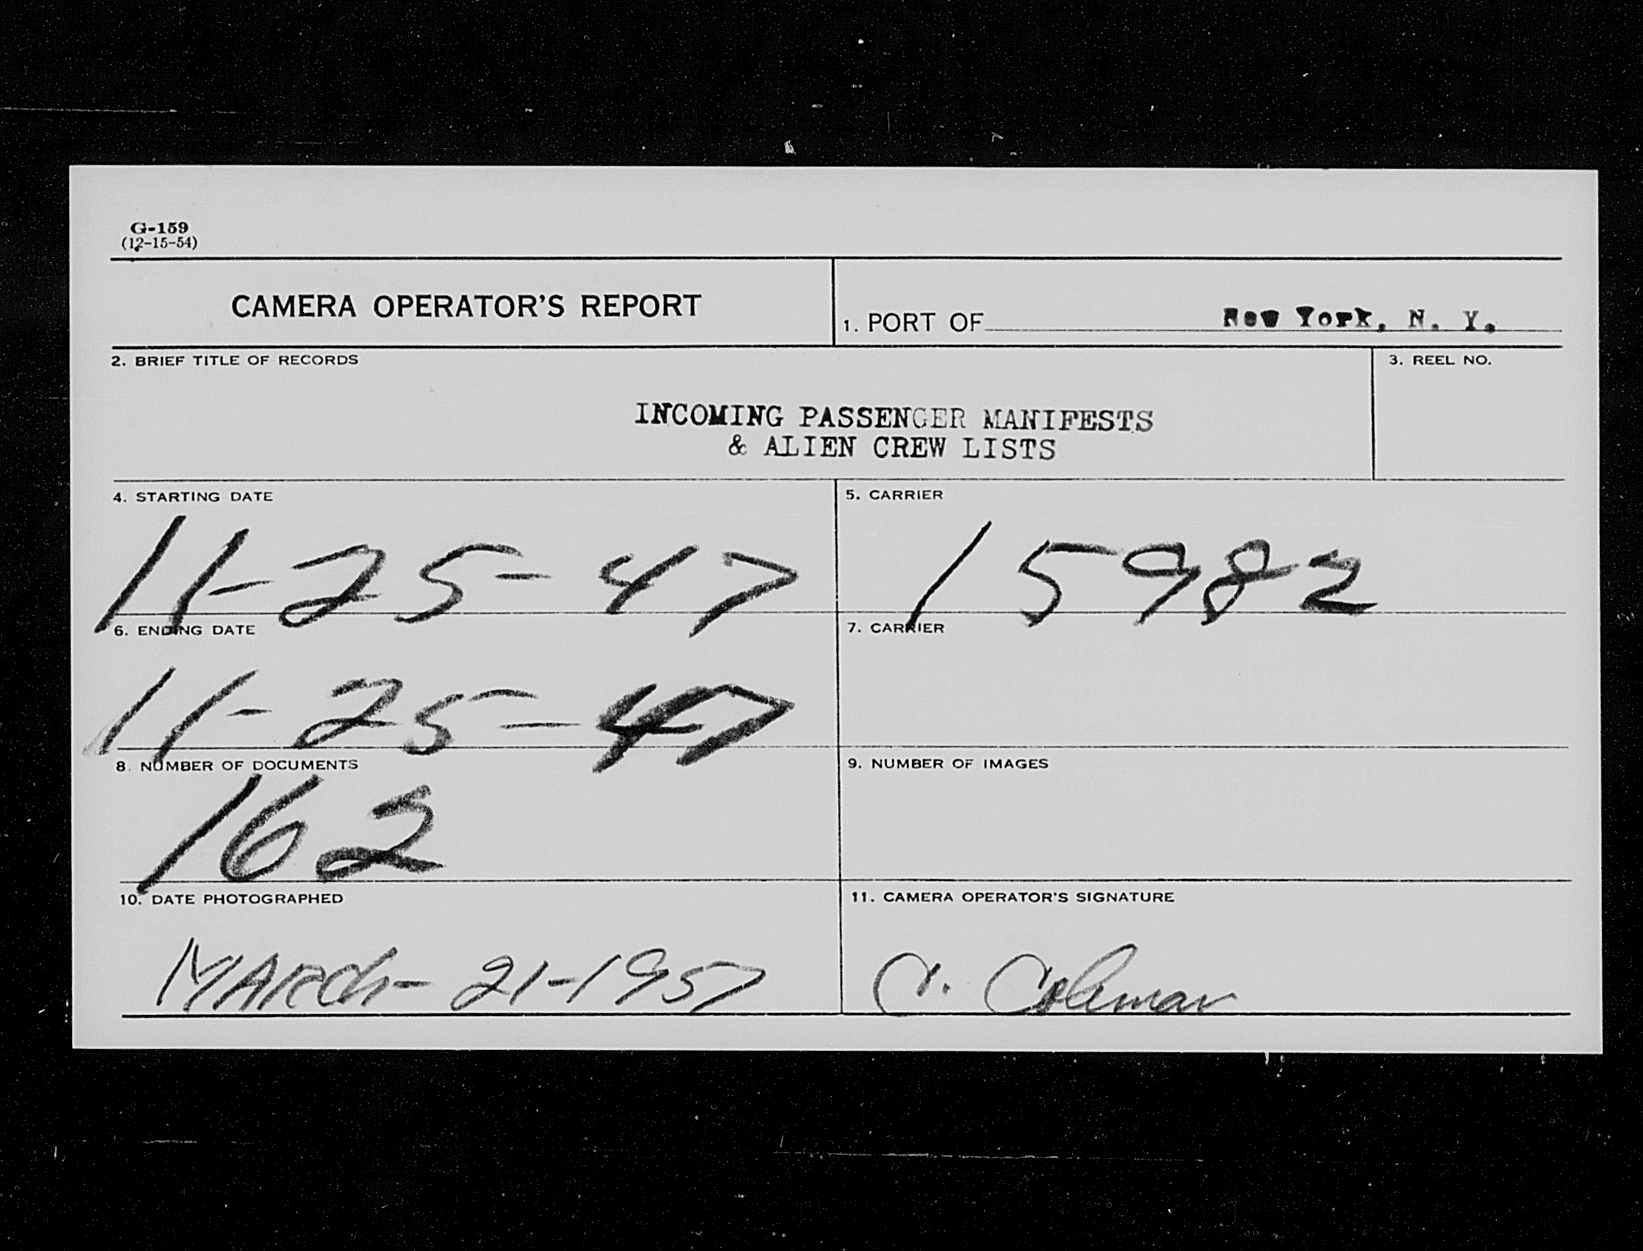 G-159
(12-15-54)
CAMERA OPERATOR'S REPORT
1. PORT OF New York, N. Y.
2. BRIEF TITLE OF RECORDS
3. REEL NO.
INCOMING PASSENGER MANIFESTS
& ALIEN CREW LISTS
4. STARTING DATE
5. CARRIER
11-25-47
15982
6. ENDING DATE
7. CARRIER
11-25-47
8. NUMBER OF DOCUMENTS
9. NUMBER OF IMAGES
162
10. DATE PHOTOGRAPHED
11. CAMERA OPERATOR'S SIGNATURE
MARch-21-1957
C. Coleman